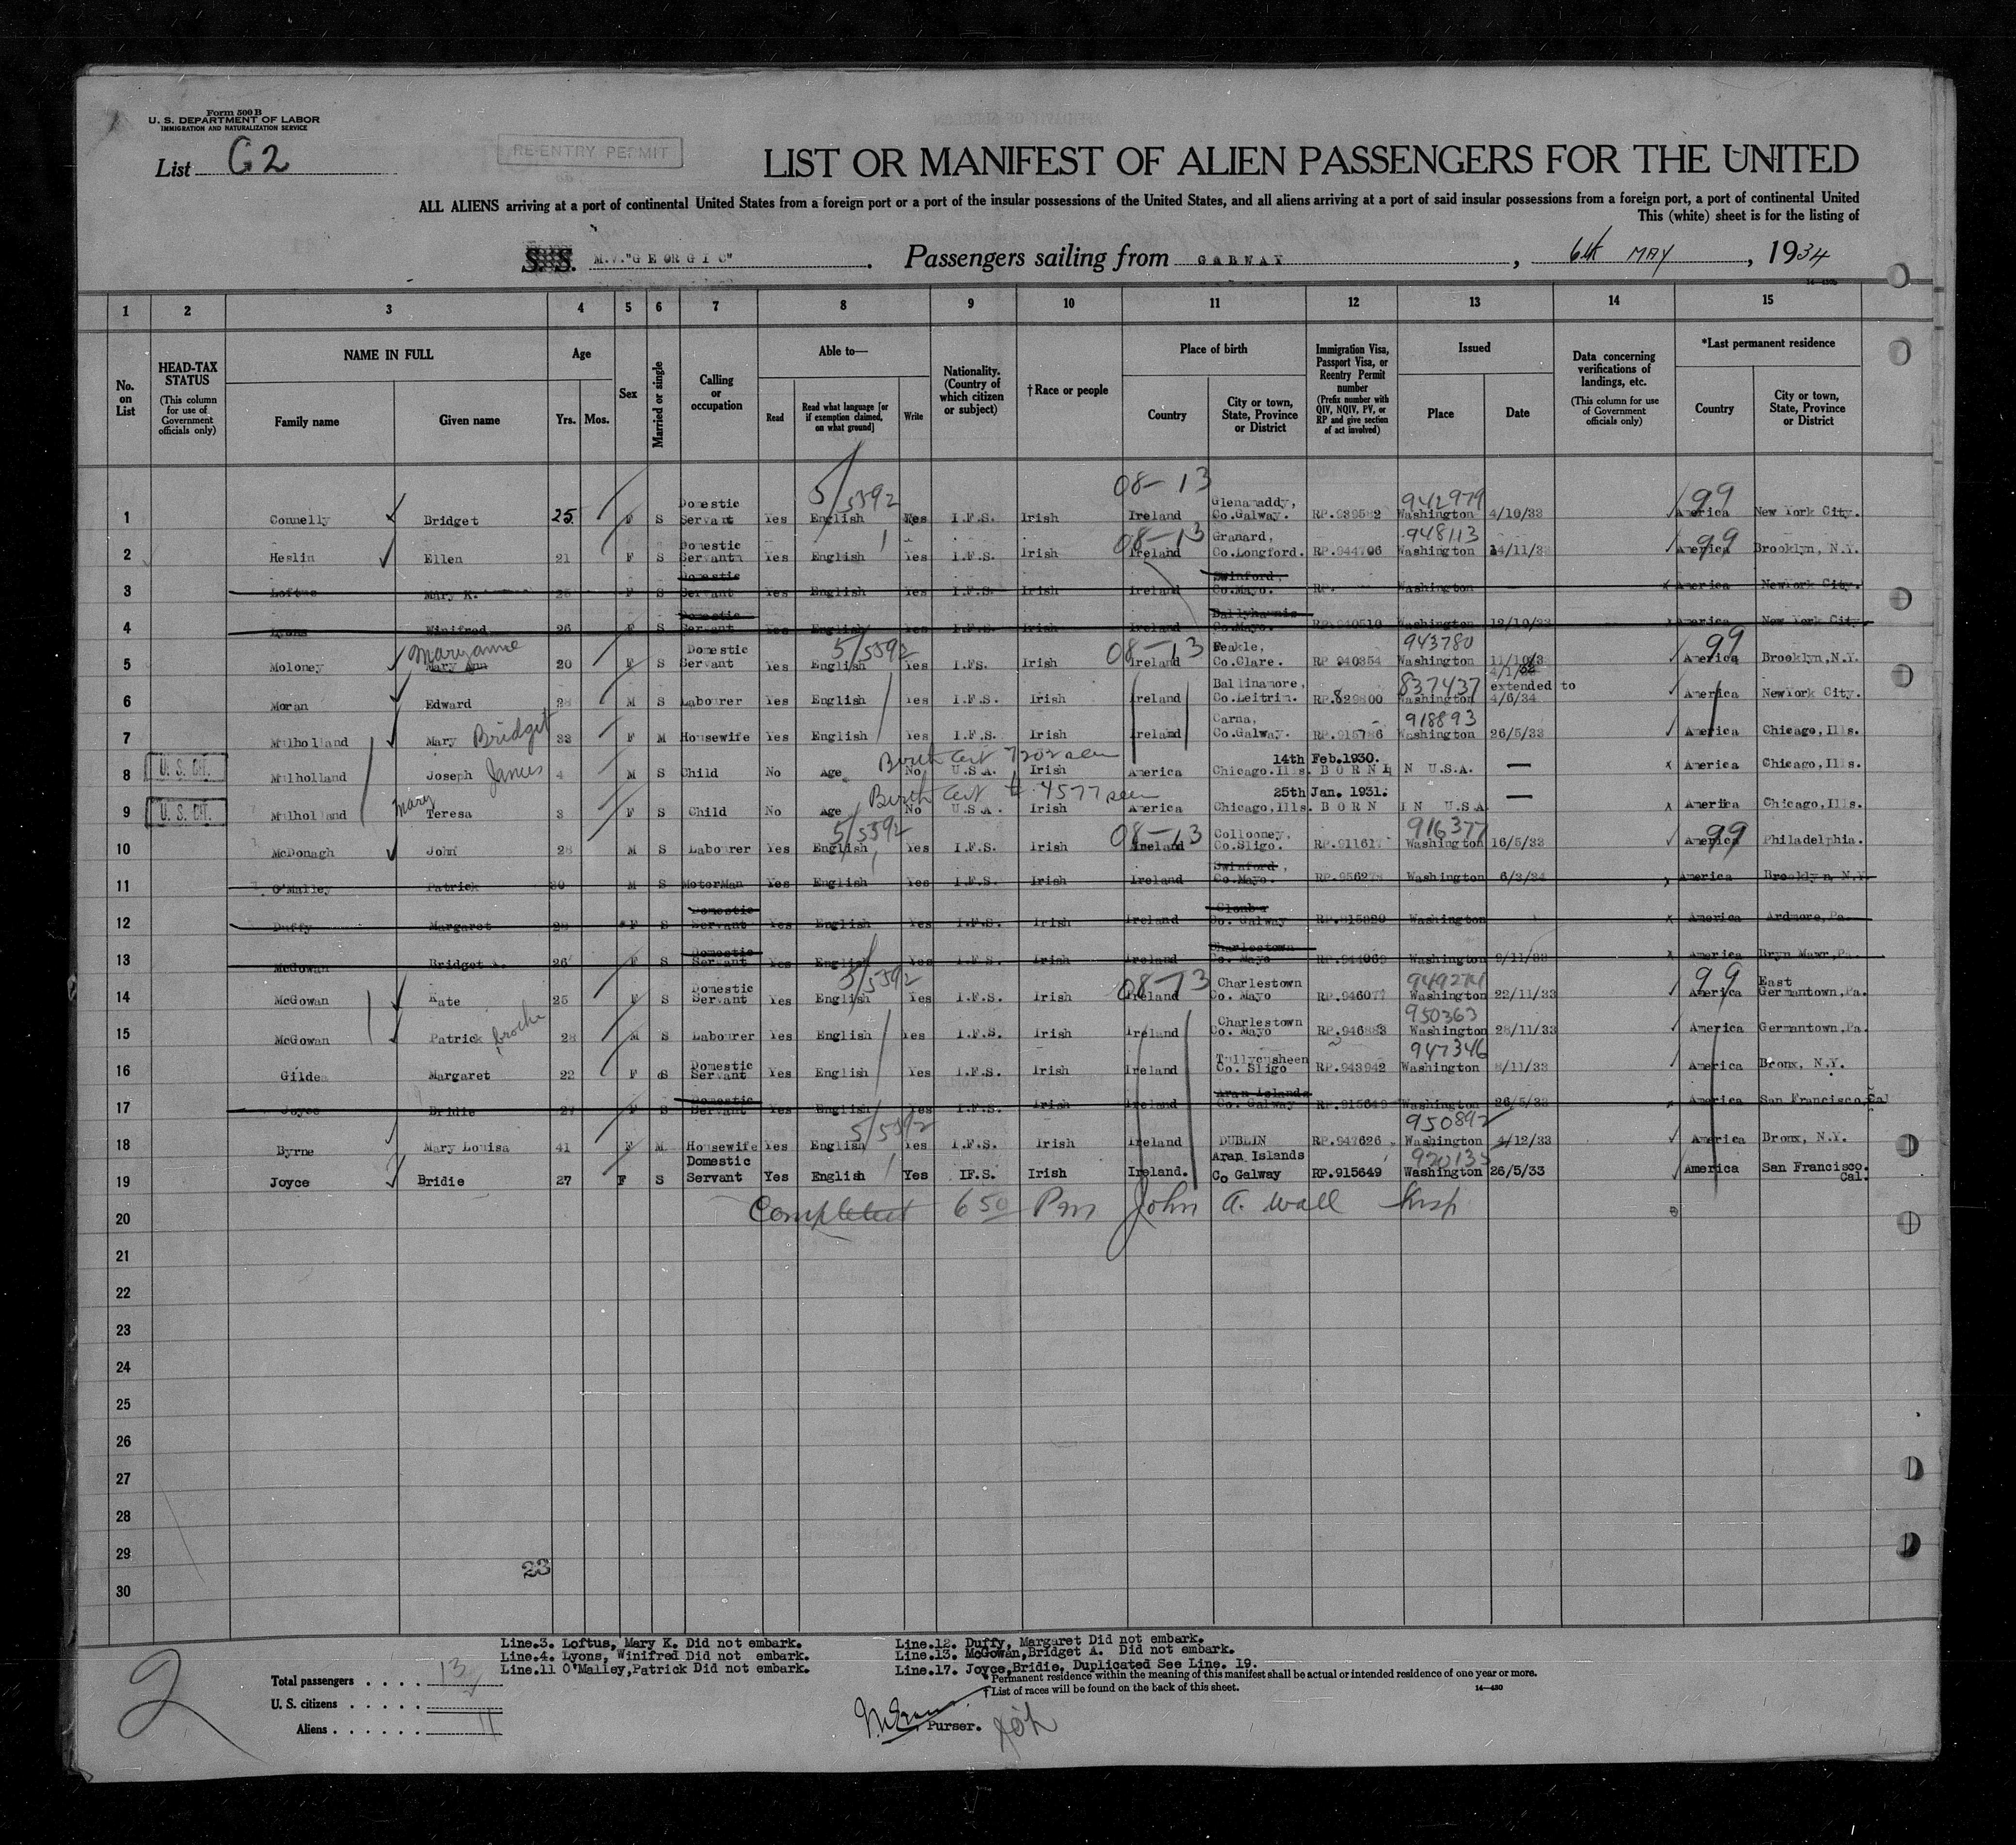 Form 500 B
U. S. DEPARTMENT OF LABOR
IMMIGRATION AND NATURALIZATION SERVICE
List G2
RE-ENTRY PERMIT
LIST OR MANIFEST OF ALIEN PASSENGERS FOR THE UNITED
ALL ALIENS arriving at a port of continental United States from a foreign port or a port of the insular possessions of the United States, and all aliens arriving at a port of said insular possessions from a foreign port, a port of continental United
This (white) sheet is for the listing of
S. S. M.V."GEORGIC" Passengers sailing from GALWAY, 6th MAY, 1934
1 2 3 4 5 6 7 8 9 10 11 12 13 14 15
No. on List
HEAD-TAX STATUS (This column for use of Government officials only)
NAME IN FULL Family name Given name
Age Yrs. Mos.
Sex
Married or single
Calling or occupation
Able to— Read Read what language [or if exemption claimed, on what ground] Write
Nationality. (Country of which citizen or subject)
†Race or people
Place of birth Country City or town, State, Province or District
Immigration Visa, Passport Visa, or Reentry Permit number (Prefix number with QIV, NQIV, PV, or RP and give section of act involved)
Issued Place Date
Data concerning verifications of landings, etc. (This column for use of Government officials only)
*Last permanent residence Country City or town, State, Province or District
5/5592 08-13 942979 99
1 Connelly Bridget 25 F S Domestic Servant Yes English Yes I.F.S. Irish Ireland Glenamaddy, Co.Galway. RP.939582 Washington 4/10/33 America New York City.
08-13 948113 99
2 Heslin Ellen 21 F S Domestic Servant Yes English Yes I.F.S. Irish Ireland Granard, Co.Longford. RP.944706 Washington 14/11/33 America Brooklyn, N.Y.
3 Loftus Mary K. F S Domestic Servant Yes English Yes I.F.S. Irish Ireland Swinford, Co.Mayo. RP. Washington America NewYork City.
4 Lyons Winifred 26 F S Domestic Servant Yes English Yes I.F.S. Irish Ireland Ballyhaunis Co.Mayo. RP.940510 Washington 12/10/33 America New York City.
Maryanne 5/5592 08-13 943780 99
5 Moloney Mary Ann 20 F S Domestic Servant Yes English Yes I.FS. Irish Ireland Feakle, Co.Clare. RP 940354 Washington America Brooklyn, N.Y.
837437
6 Moran Edward 28 M S Labourer Yes English Yes I.F.S. Irish Ireland Ballinamore, Co.Leitrim. RP.829800 Washington extended to 4/6/34 America NewYork City.
918893
7 Mulholland Mary Bridget 33 F M Housewife Yes English Yes I.F.S. Irish Ireland Carna, Co.Galway. RP.915786 Washington 26/5/33 America Chicago, Ills.
Birth Cert 7202 seen 14th Feb.1930.
8 U. S. CIT. Mulholland Joseph James 4 M S Child No Age No U.S.A. Irish America Chicago.Ills. BORN IN U.S.A. — America Chicago, Ills.
Birth Cert # 4577 seen 25th Jan. 1931.
9 U. S. CIT. Mulholland Mary Teresa 3 F S Child No Age No U.S.A. Irish America Chicago, Ills. BORN IN U.S.A — America Chicago, Ills.
5/5592 08-13 916377 99
10 McDonagh John 28 M S Labourer Yes English Yes I.F.S. Irish Ireland Collooney, Co.Sligo. RP.911617 Washington 16/5/33 America Philadelphia.
11 O'Malley Patrick 30 M S MotorMan Yes English Yes I.F.S. Irish Ireland Swinford, Co.Mayo. Washington 6/3/34 America Brooklyn, N.Y
12 Duffy Margaret F S Domestic Servant Yes English Yes I.F.S. Irish Ireland Co. Galway RP.915820 Washington America Ardmore, Pa.
13 McGowan Bridget A. 26 F S Domestic Servant Yes English Yes I.F.S. Irish Ireland Charlestown Co. Mayo Washington 9/11/33 America Bryn Mawr, Pa.
5/5592 08-13 949274 99
14 McGowan Kate 25 F S Domestic Servant Yes English Yes I.F.S. Irish Ireland Charlestown Co. Mayo RP.946077 Washington 22/11/33 America East Germantown, Pa.
950363
15 McGowan Patrick 28 M S Labourer Yes English Yes I.F.S. Irish Ireland Charlestown Co. Mayo RP.946883 Washington 28/11/33 America Germantown, Pa.
947346
16 Gildea Margaret 22 F S Domestic Servant Yes English Yes I.F.S. Irish Ireland Tullycusheen Co. Sligo RP.943942 Washington 8/11/33 America Bronx, N.Y.
17 Joyce Bridie 27 F S Domestic Servant Yes English Yes I.F.S. Irish Ireland Aran Islands Co. Galway RP.915649 Washington 26/5/33 America San Francisco, Cal
5/5592 950892
18 Byrne Mary Louisa 41 F M Housewife Yes English Yes I.F.S. Irish Ireland DUBLIN RP.947626 Washington 4/12/33 America Bronx, N.Y.
19 Joyce Bridie 27 F S Domestic Servant Yes English Yes IF.S. Irish Ireland. Aran Islands Co Galway RP.915649 Washington 26/5/33 America San Francisco. Cal.
20 Completed 6 50 Pm John A. Wall Insp
21
22
23
24
25
26
27
28
29
30
23
Line.3. Loftus, Mary K. Did not embark.
Line.4. Lyons, Winifred Did not embark.
Line.11 O'Malley,Patrick Did not embark.
Line.12. Duffy, Margaret Did not embark.
Line.13. McGowan,Bridget A. Did not embark.
Line.17. Joyce,Bridie, Duplicated See Line. 19.
*Permanent residence within the meaning of this manifest shall be actual or intended residence of one year or more.
†List of races will be found on the back of this sheet.
14—430
2
Total passengers . . . . 13
U. S. citizens . . . . .
Aliens . . . . . . 11
Purser.